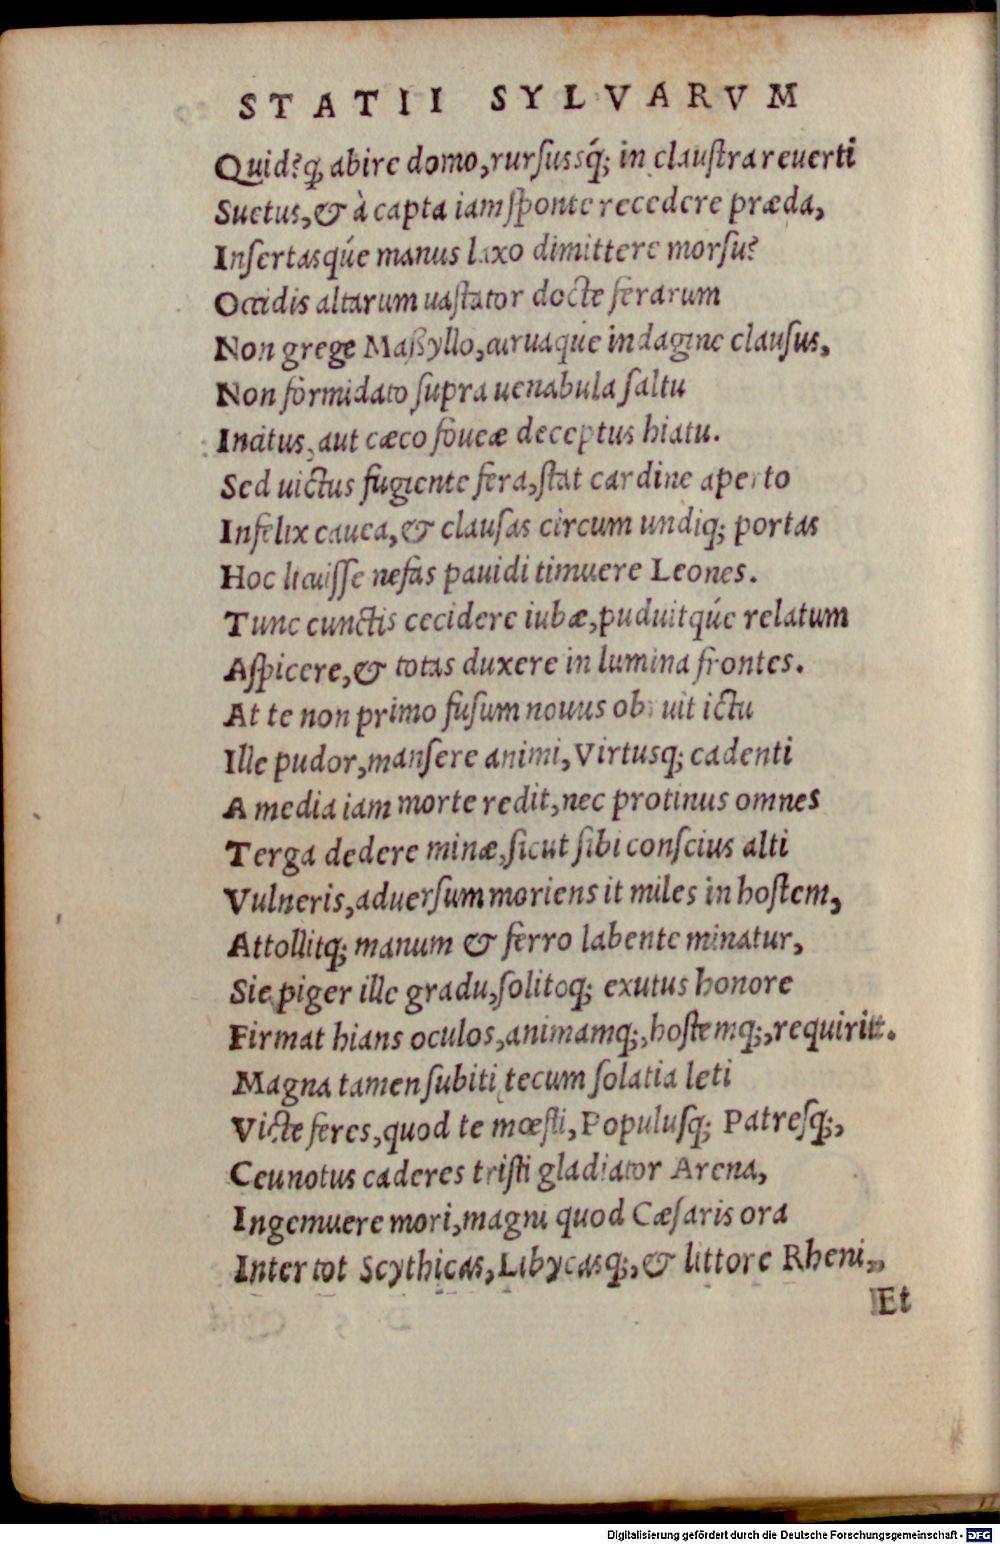 STATII SYLVARVM
Quid?q; abire domo, rursussq́; in claustra reuerti
Suetus, & à capta iam sponte recedere præda,
Insertasqúe manus laxo dimittere morsu?
Occidis altarum uastator docte ferarum
Non grege Maßyllo, curuaque indagine clausus,
Non formidato supra uenabula saltu
Incitus, aut cæco foueæ deceptus hiatu.
Sed uictus fugiente fera, stat cardine aperto
Infelix cauea, & clausas circum undiq; portas
Hoc licuisse nefas pauidi timuere Leones.
Tunc cunctis cecidere iubæ, puduitqúe relatum
Aspicere, & totas duxere in lumina frontes.
At te non primo fusum nouus obruit ictu
Ille pudor, mansere animi, Virtusq; cadenti
A media iam morte redit, nec protinus omnes
Terga dedere minæ, sicut sibi conscius alti
Vulneris, aduersum moriens it miles in hostem,
Attollitq; manum & ferro labente minatur,
Sic piger ille gradu, solitoq; exutus honore
Firmat hians oculos, animamq;, hostemq;, requirit.
Magna tamen subiti tecum solatia leti
Victe feres, quod te mœsti, Populusq; Patresq;,
Ceu notus caderes tristi gladiator Arena,
Ingemuere mori, magni quod Cæsaris ora
Inter tot Scythicas, Libycasq;, & littore Rheni,,
Et
Digitalisierung gefördert durch die Deutsche Forschungsgemeinschaft - DFG